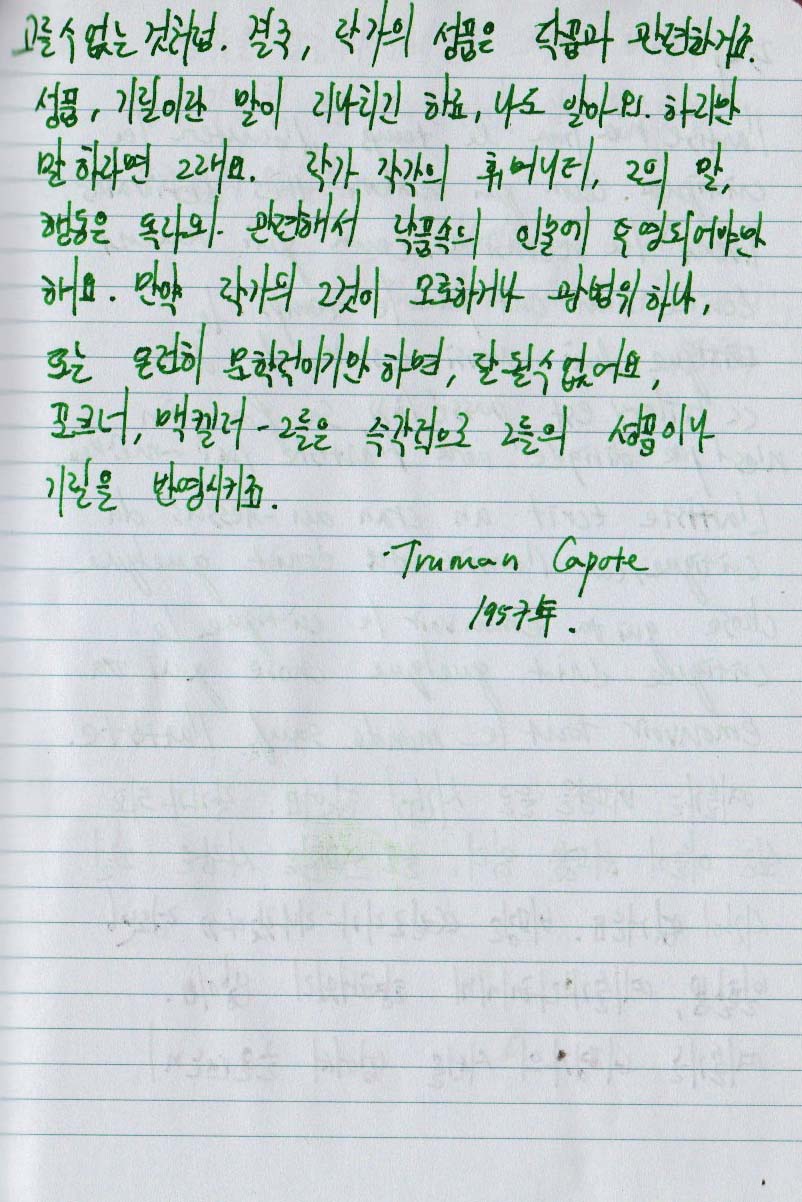 고를수 없는 것처럼. 결국, 작가의 성품은 작품과 관련하거죠.
성품, 기질이란 말이 지나치긴 하죠, 나도 알아요. 하지만
말하라면 그래요. 작가 각각의 휴머니티, 그의 말,
행동은 독자와 관련해서 작품속의 인물에 투영되어야만
해요. 만약 작가의 그것이 모호하거나 광범위하나,
또는 온전히 문학적이기만 하면, 잘 될수 없어요,
포크너, 맥켈러 - 그들은 즉각적으로 그들의 성품이나
기질을 반영시키죠.
· Truman Capote
1957年.